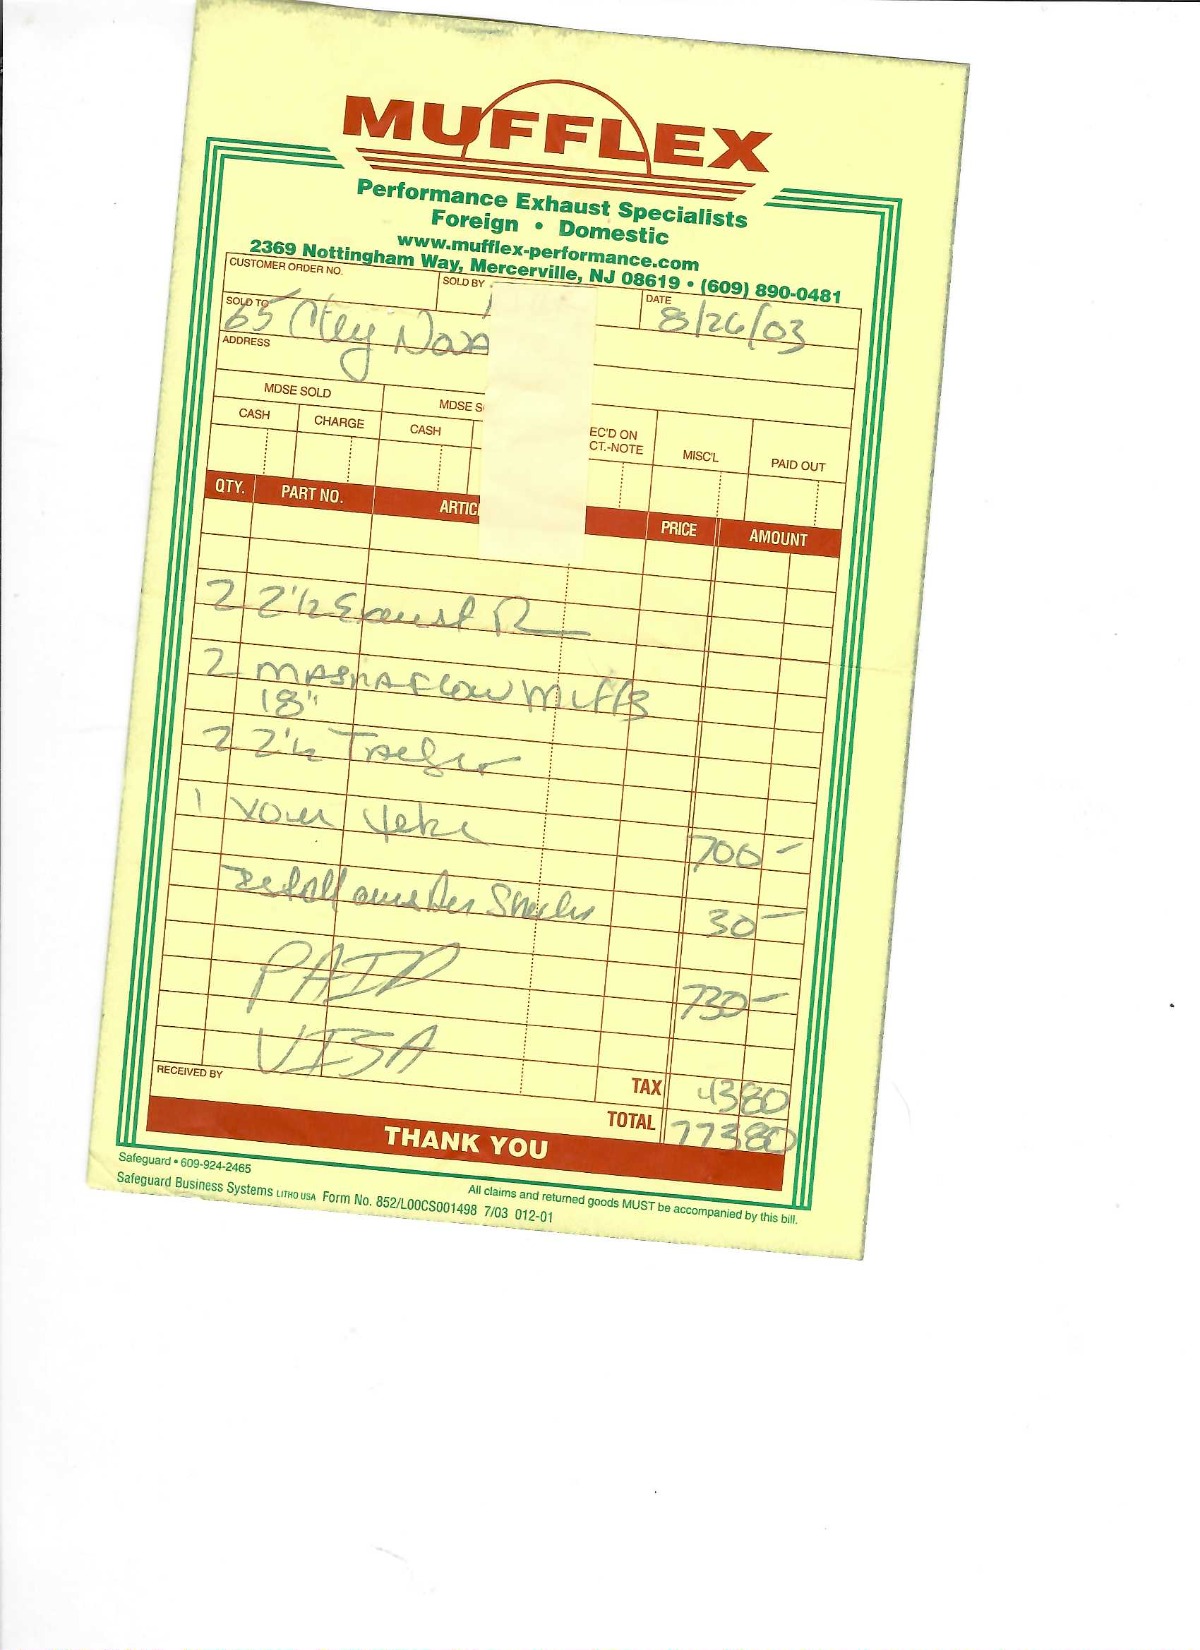 MUFFLEX
Performance Exhaust Specialists
Foreign • Domestic
www.mufflex-performance.com
2369 Nottingham Way, Mercerville, NJ 08619 • (609) 890-0481
CUSTOMER ORDER NO. SOLD BY DATE
8/26/03
SOLD TO
65 Chy Nova
ADDRESS
MDSE SOLD MDSE S
CASH CHARGE CASH EC'D ON CT.-NOTE MISC'L PAID OUT
QTY. PART NO. ARTIC PRICE AMOUNT
2 2 1/2 Exaust
2 MAGNAFLOW Muffs
18"
2 2 1/2
1 700 -
Install Shocks 30 -
PAID 730 -
VISA
RECEIVED BY TAX 43 80
TOTAL 773 80
THANK YOU
Safeguard • 609-924-2465
Safeguard Business Systems LITHO USA Form No. 852/L00CS001498 7/03 012-01
All claims and returned goods MUST be accompanied by this bill.